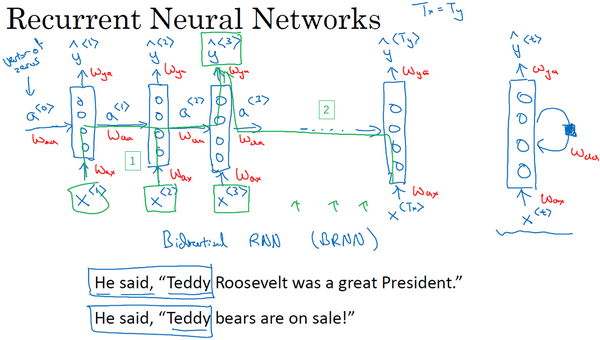 Recurrent Neural Networks
Tx = Ty
vector of zeros
ŷ<1> ŷ<2> ŷ<3> ŷ<Ty> ŷ<t>
Wya Wya Wya Wya Wya
a<0> a<1> a<2> a<3> 2
Waa Waa Waa Waa Waa
1
Wax Wax Wax Wax Wax
x<1> x<2> x<3> x<Tx> x<t>
Bidirectional RNN (BRNN)
He said, “Teddy Roosevelt was a great President.”
He said, “Teddy bears are on sale!”